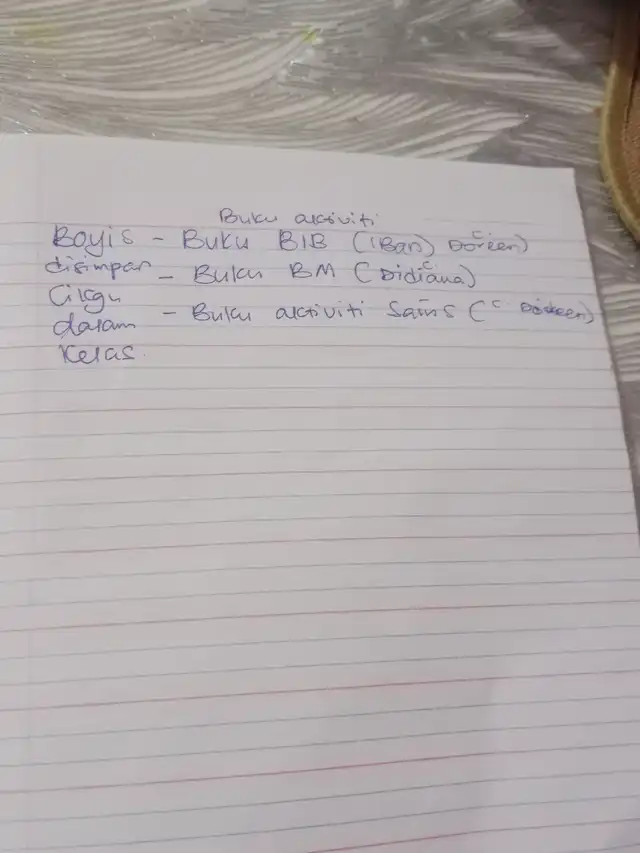 Buku aktiviti
Boyis - Buku BIB (Iban) C Doreen)
disimpan - Buku BM (C Didiana)
Cikgu
dalam - Buku aktiviti Sains (C Doreen)
Kelas.